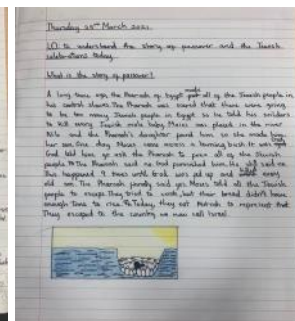 Thursday 25th March 2021
LO: to understand the story of passover and the Jewish
celebrations today.
What is the story of passover?
made
A long time ago, the Pharoah of Egypt all of the Jewish people in
his control slaves. The Pharoah was scared that there were going
to be too many Jewish people in Egypt so he told his soldiers
to kill every Jewish male baby. Moses was placed in the river
Nile and the Pharoah's daughter found him so she made him
her son. One day Moses came across a burning bush. It was
God told him go ask the Pharoah to free all of the Jewish
people. The Pharoah said no. God punished him. He still said no.
This happened 9 times until God was fed up and killed every
old son. The Pharoah finally said yes. Moses told all the Jewish
people to escape. They tried to but their bread didn't have
enough time to rise. Today, they eat Matzah to represent that.
They escaped to the country we now call Israel.